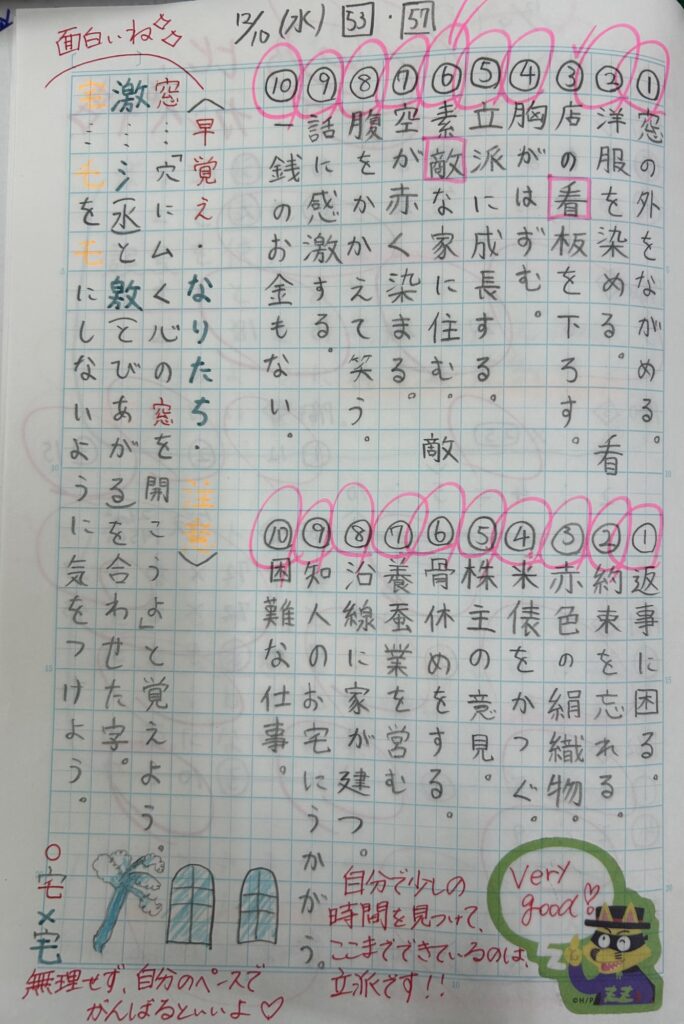 12/10(水) 53・57
面白いね
①窓の外をながめる。
②洋服を染める。
看
③店の看板を下ろす。
④胸がはずむ。
⑤立派に成長する。
⑥素敵な家に住む。
敵
⑦空が赤く染まる。
⑧腹をかかえて笑う。
⑨話に感激する。
⑩一銭のお金もない。
①返事に困る。
②約束を忘れる。
③赤色の絹織物。
④米俵をかつぐ。
⑤株主の意見。
⑥骨休めをする。
⑦養蚕業を営む
⑧沿線に家が建つ。
⑨知人のお宅にうかがう。
⑩困難な仕事。
〈早覚え・なりたち・注意〉
窓…「穴にムく心の窓を開こうよ」と覚えよう。
激…シ(水)と敫(とびあがる)を合わせた字。
宅…乇をモにしないように気をつけよう。
○宅×宅
Very good!
自分で少しの
時間を見つけて、
ここまでできているのは、
立派です!!
無理せず、自分のペースで
がんばるといいよ♡